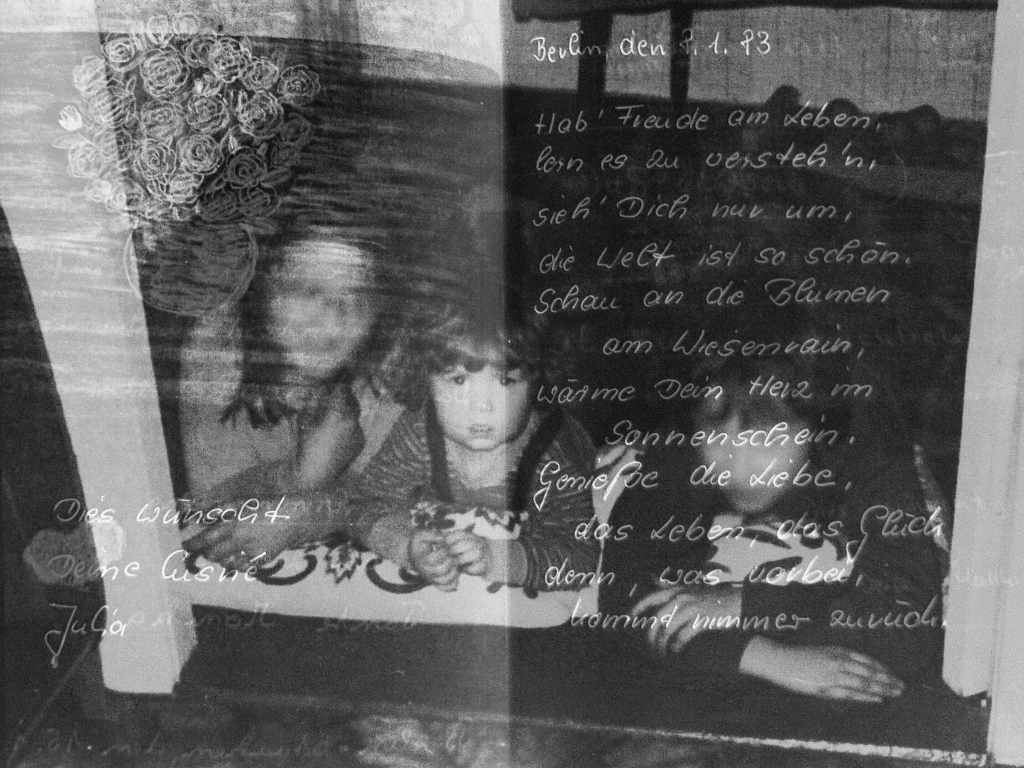 Berlin, den 8. 1. 83
Hab' Freude am Leben,
lern es zu versteh'n,
sieh' Dich nur um,
die Welt ist so schön.
Schau an die Blumen
am Wiesenrain,
wärme Dein Herz im
Sonnenschein.
Genieße die Liebe,
das Leben, das Glück
denn, was vorbei,
kommt nimmer zurück.
Dies wünscht
Deine
Julia